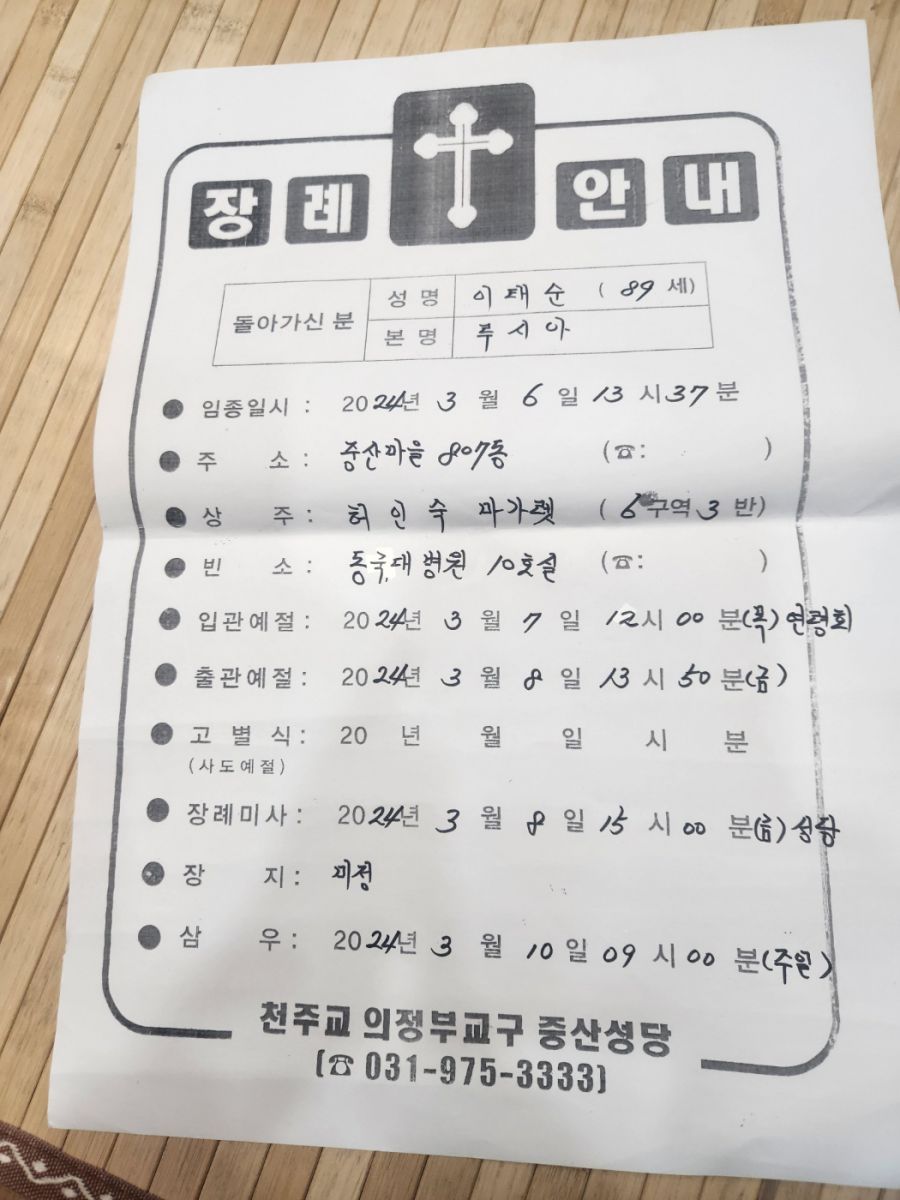 장례 안내
돌아가신 분
성 명 이태순 ( 89 세)
본 명 루시아
임종일시 : 2024년 3 월 6 일 13 시 37 분
주 소 : 중산마을 807동 (☎: )
상 주 : 허인숙 마가렛 ( 6 구역 3 반)
빈 소 : 동국대병원 10호실 (☎: )
입관예절 : 2024년 3 월 7 일 12시 00 분(목) 연령회
출관예절 : 2024년 3 월 8 일 13 시 50 분(금)
고 별 식 : 20 년 월 일 시 분
(사도예절)
장례미사 : 2024년 3 월 8 일 15 시 00 분(금) 성당
장 지 : 미정
삼 우 : 2024년 3 월 10 일 09 시 00 분(주일)
천주교 의정부교구 중산성당
(☎ 031-975-3333)